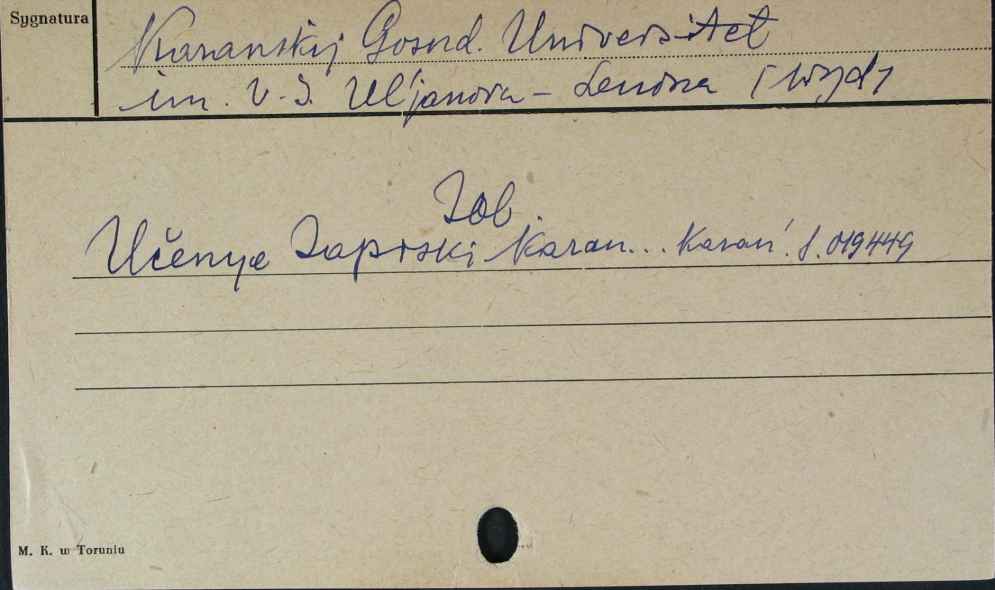 Sygnatura
Kazanskij Gosud. Universitet
im. V. I. Ul'janova - Lenina /wyd/
Zob.
Učenye Zapiski Kazan... Kazań. S. 019449
M. K. w Toruniu